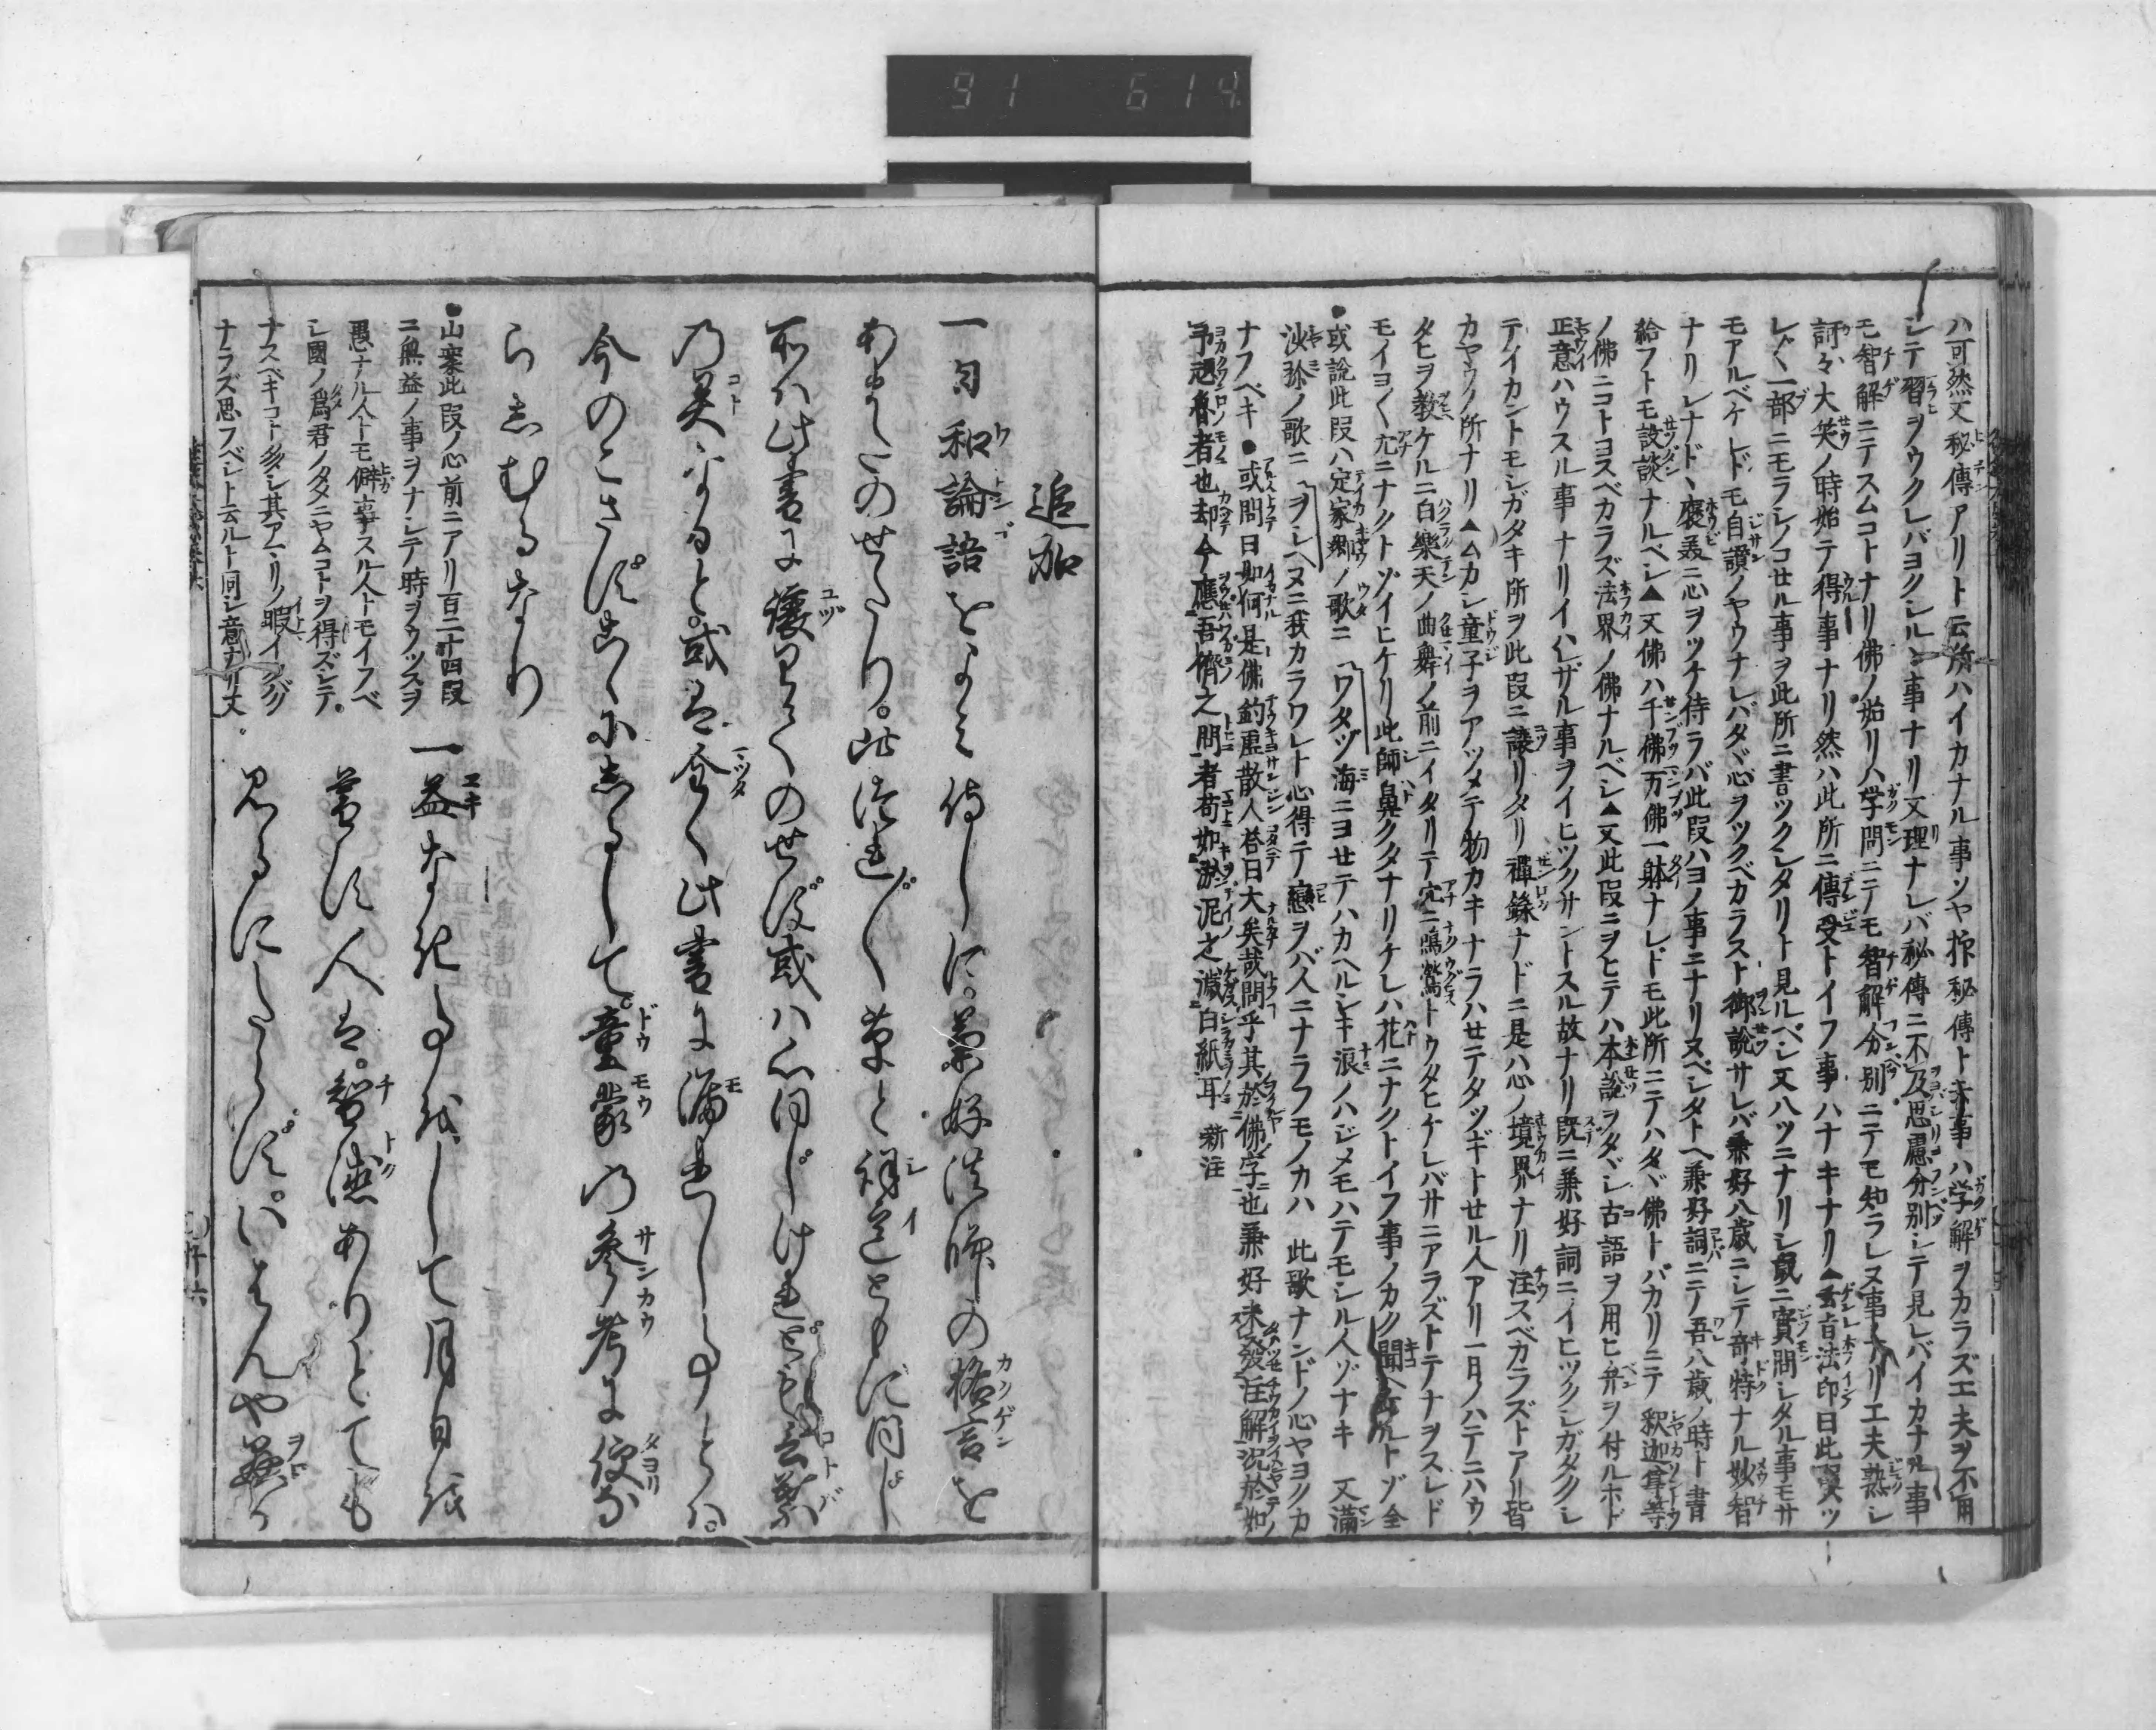 91 614
ハ可然又秘傳アリト云所ハイカナル事ソヤ抑秘傳ト云事ハ学解ヲカラズエ夫ヲ不用
シテ習ヲウクレバヨクシルヽ事ナリ又理ナレバ秘傳ニ不及思慮分別シテ見レバイカナル事
モ智解ニテスムコトナリ佛ノ始リハ学問ニテモ智解分別ニテモ知ラレヌ事ナリエ夫熟シ
訶々大笑ノ時始テ得事ナリ然ハ此所ニ傳受トイフ事ハナキナリ▲玄旨法印曰此段ツ
レ〱一部ニモラシノコセル事ヲ此所ニ書ツクシタリト見ルベシ又八ツニナリシ歳ニ實問シタル事モサ
モアルベケレドモ自讃ノヤウナレバタヾ心ヲツクベカラスト御説サレバ兼好八歳ニシテ奇特ナル妙智
ナリシナドヽ褒羙ニ心ヲツケ侍ラバ此段ハヨノ事ニナリヌベシタトヘ兼好詞ニテ吾八歳ノ時ト書
給フトモ設談ナルベシ▲又佛ハ千佛万佛一躰ナレドモ此所ニテハタヾ佛トバカリニテ釈迦尊等
ノ佛ニコトヨスベカラズ法界ノ佛ナルベシ▲又此段ニヲヒテハ本説ヲタヾシ古語ヲ用ヒ弁ヲ付ルホド
正意ハウスル事ナリイハレザル事ヲイヒツクサントスル故ナリ既ニ兼好詞ニイヒツクシガタクシ
テイカントモシガタキ所ヲ此段ニ譲リタリ禪録ナドニ是ハ心ノ境界ナリ注スベカラズトアル皆
カヤウノ所ナリ▲ムカシ童子ヲアツメテ物カキナラハセテタツギトセル人アリ一日ノハテニハウ
タヒヲ教ケルニ白樂天ノ曲舞ノ前ニイタリテ宂ニ鳴鶯トウタヒケレバサニアラズトテナヲスレド
モイヨ〱宂ニナクトゾイヒケリ此師鼻クタナリケレハ花ニナクトイフ事ノカク聞ヘケルトゾ全
●或説此段ハ定家卿ノ歌ニ「ワタヅ海ニヨセテハカヘルシキ浪ノハジメモハテモシル人ゾナキ 又滿
沙弥ノ歌ニ「ヲシヘヌニ我カラワレト心得テ戀ヲバ人ニナラフモノカハ 此歌ナンドノ心ヤヨクカ
ナフベキ ●或問曰如何是佛釣虚散人答曰大矣哉問乎其於佛字也兼好未發注解況於如
予愚魯者也却今應吾儕之問者苟如淤泥之濺白紙耳 新注
追加
一旬和論語をよミ侍しに。兼好法師の格言を
あまたのせたり。此つれ〴〵草と稱意ともに同じ
所ハ此書に讓りてのせず或ハ心同じけれども言葉
乃異なると。或は全く此書に漏れし事とハ。
今のこさずこゝにしるして。童蒙の參考に便な
らしむるなり
●山案此段ノ心前ニアリ百二十四段
ニ無益ノ事ヲナシテ時ヲウツスヲ
愚ナル人トモ僻事スル人トモイフベ
シ國ノ為君ノタメニヤムコトヲ得ズシテ
ナスベキコト多シ其アマリノ暇イクバク
ナラズ思フベシト云ルト同シ意ナリ丈
一益なき事をして月日を
費す人は。智徳ありとても
見るにたらず。いはんや藝